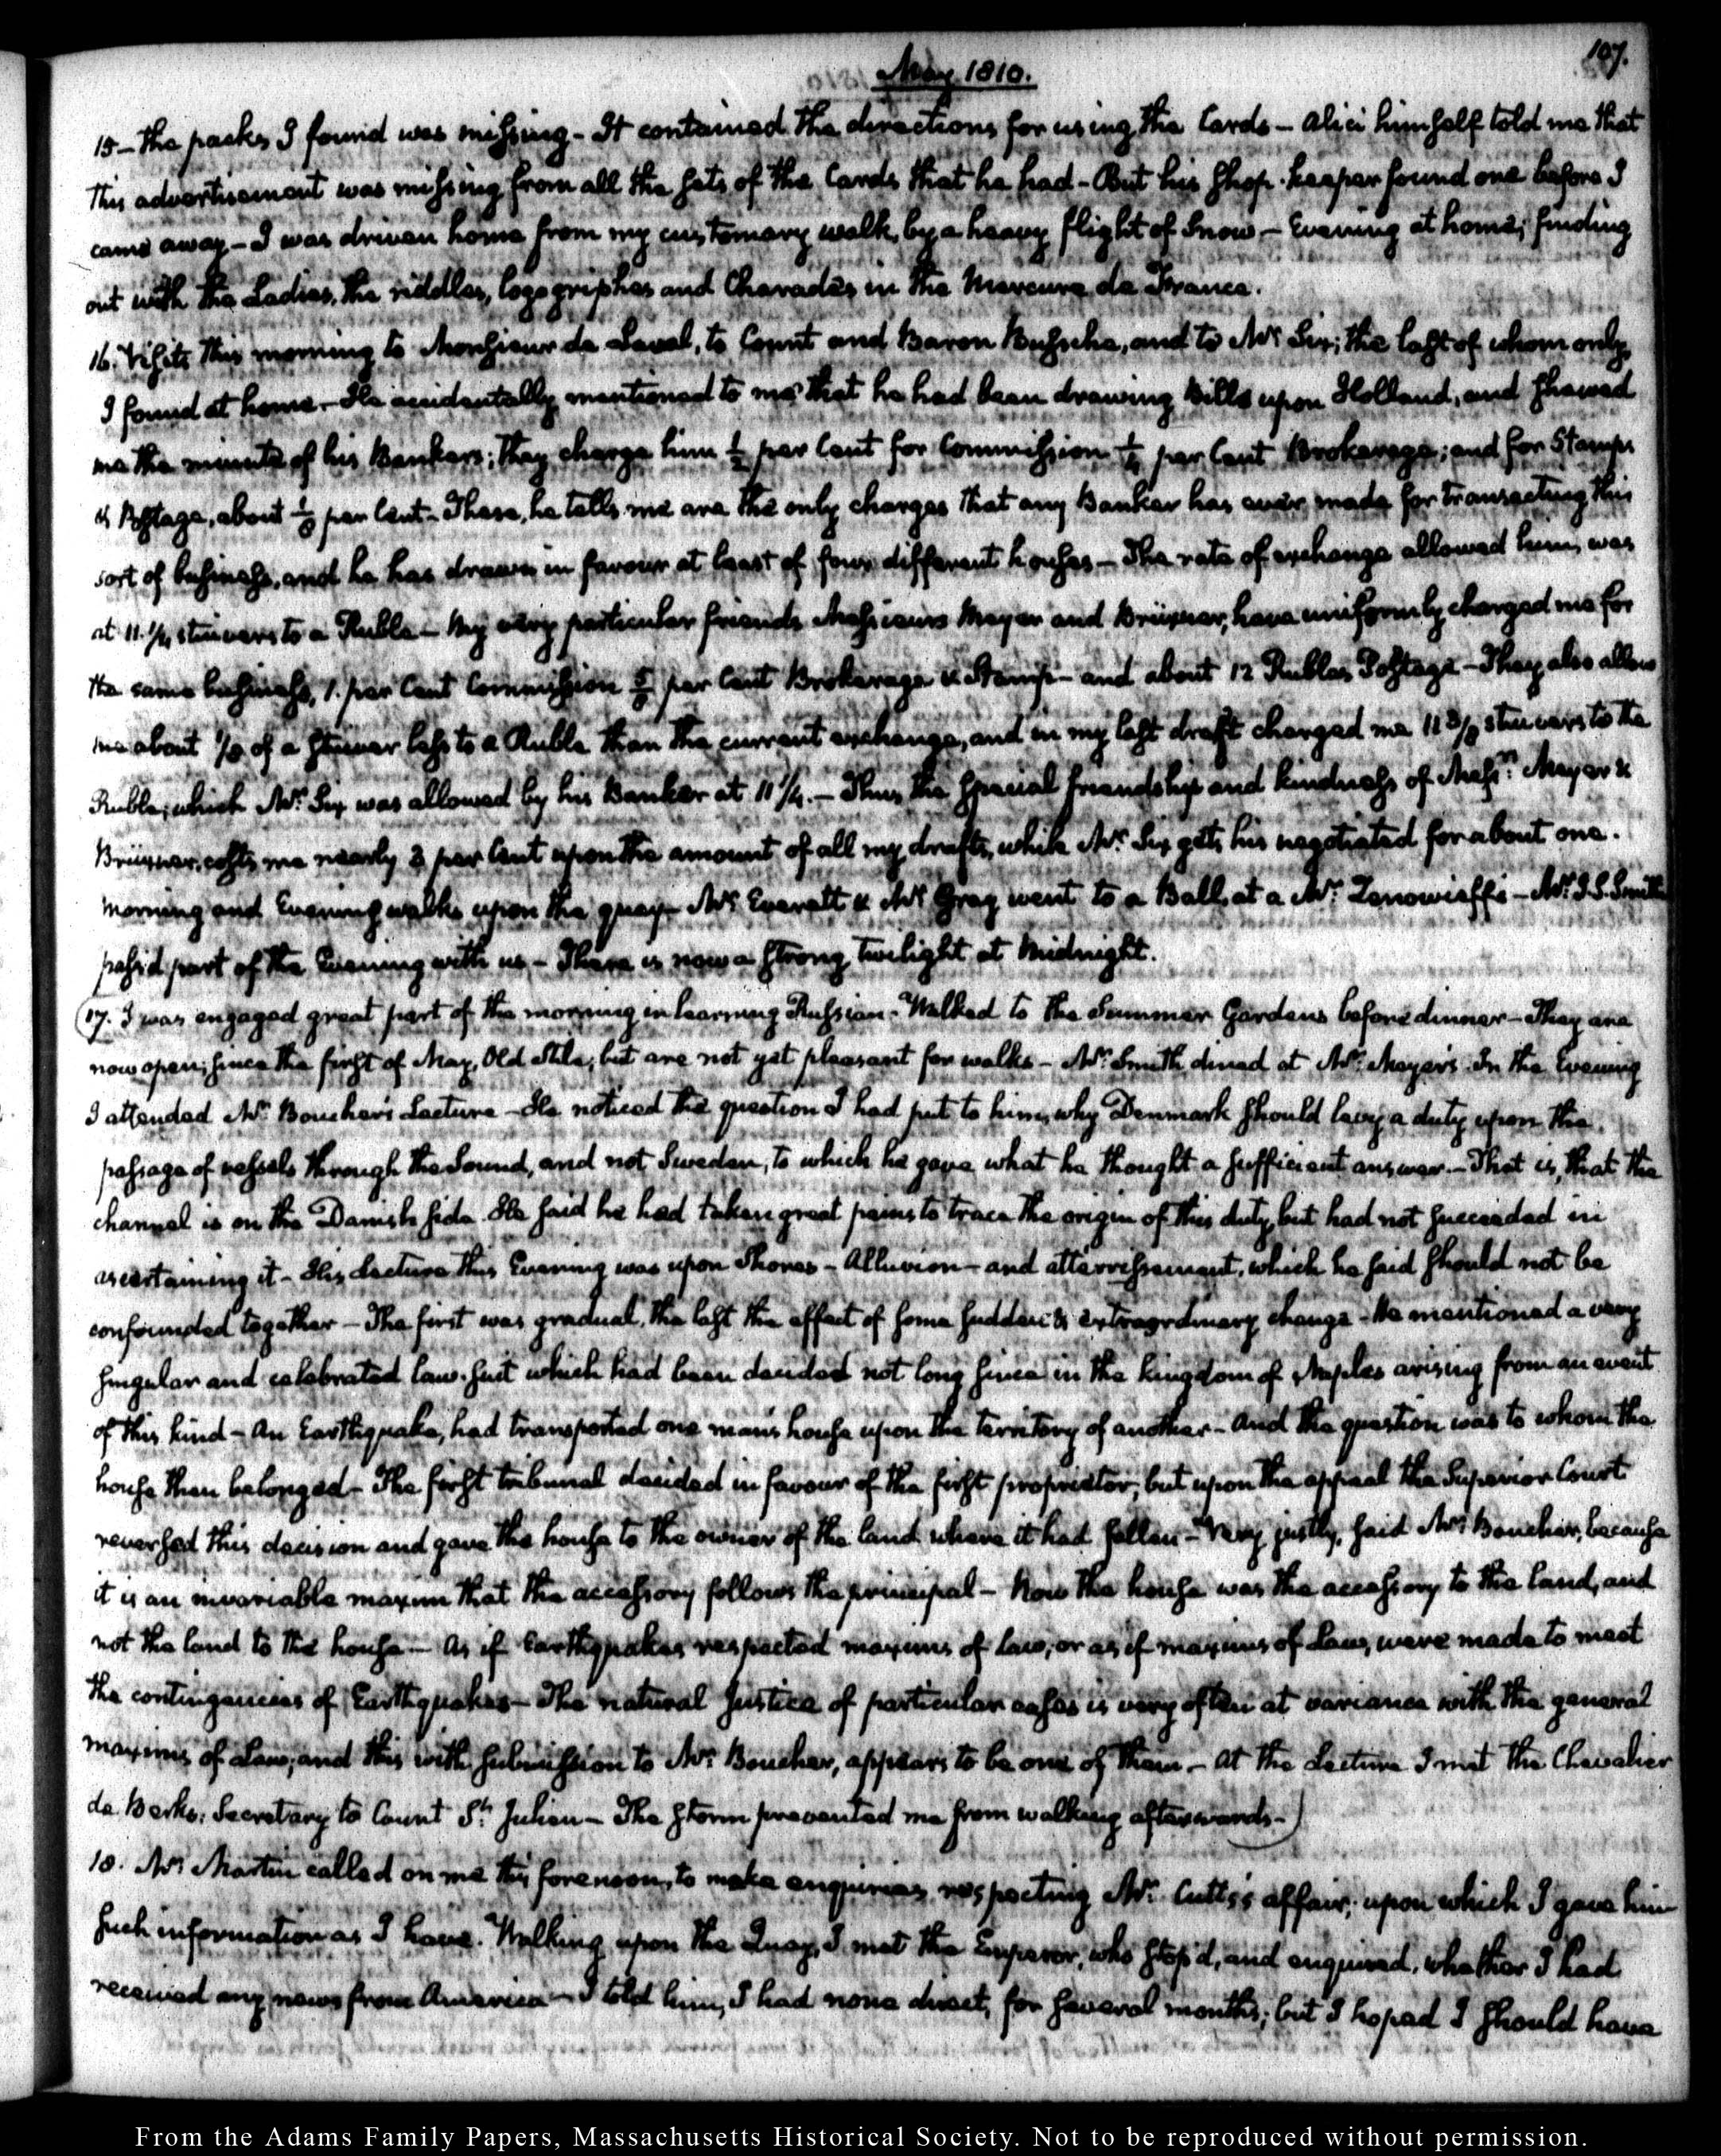 107.
May 1810.
15 — the packs I found was missing — It contained the directions for using the Cards — Alici himself told me that
this advertisement was missing from all the sets of the Cards that he had — But his Shop-keeper found one before I
came away — I was driven home from my customary walk, by a heavy flight of Snow — Evening at home; finding
out with the Ladies, the riddles, logogriphes and Charades in the Mercure de France.
16. Visits this morning to Monsieur de Laval, to Count and Baron Bussche, and to Mr. Six; the last of whom only,
I found at home. — He accidentally mentioned to me that he had been drawing bills upon Holland, and shewed
me the minute of his Bankers; they charge him ½ per Cent for Commission ¼ per Cent Brokerage; and for Stamps
& Postage, about ⅛ per Cent — These, he tells me are the only charges that any Banker has ever made for transacting this
sort of business, and he has drawn in favour at least of four different houses — The rate of exchange allowed him, was
at 11.¼ stuivers to a Ruble — My very particular friends Messieurs Meyer and Brüxner, have uniformly charged me for
the same business, 1. per Cent Commission ⅝ per Cent Brokerage & Stamps — and about 12 Rubles Postage — They also allow
me about 1/8 of a stuiver less to a Ruble than the current exchange, and in my last draft charged me 11 3/8 stuivers to the
Ruble; which Mr. Six was allowed by his Banker at 11 1/4. — Thus the special friendship and kindness of Messrs. Meyer &
Brüxner, costs me nearly 2 per Cent upon the amount of all my drafts, while Mr. Six gets his negotiated for about one.
Morning and Evening walks upon the quay — Mr. Everett & Mr. Gray went to a Ball, at a Mr. — Mr. J. S. Smith
pass'd part of the Evening with us. — There is now a strong twilight at Midnight.
17. I was engaged great part of the morning in learning Russian. Walked to the Summer Gardens before dinner — They are
now open; since the first of May, Old Stile; but are not yet pleasant for walks — Mr. Smith dined at Mr. Meyer's. In the Evening
I attended Mr. Boucher's Lecture — He noticed the question I had put to him, why Denmark should levy a duty upon the
passage of vessels through the Sound, and not Sweden, to which he gave what he thought a sufficient answer. — That is, that the
channel is on the Danish side. He said he had taken great pains to trace the origin of this duty, but had not succeeded in
ascertaining it — His Lecture this Evening was upon Shores — Alluvion — and atterrissement, which he said should not be
confounded together — The first was gradual, the last the effect of some sudden & extraordinary change — He mentioned a very
singular and celebrated law-suit which had been decided not long since in the kingdom of Naples arising from an event
of this kind — An Earthquake, had transported one man's house upon the territory of another — And the question was to whom the
house then belonged — The first tribunal decided in favour of the first proprietor; but upon the appeal the Superior Court
reversed this decision and gave the house to the owner of the land where it had fallen — Very justly, said Mr. Boucher, because
it is an invariable maxim that the accessory follows the principal — Now the house was the accessory to the land, and
not the land to the house — As if Earthquakes respected maxims of law; or as if maxims of Law, were made to meet
the contingencies of Earthquakes — The natural Justice of particular cases is very often at variance with the general
maxims of Law; and this with submission to Mr. Boucher, appears to be one of them. — At the Lecture I met the Chevalier
de Berks: Secretary to Count St. Julien — The storm prevented me from walking afterwards —
18. Mr. Martin called on me this forenoon, to make enquiries respecting Mr. Cutts's affair; upon which I gave him
such information as I have. Walking upon the Quay, I met the Emperor, who stop'd, and enquired, whether I had
received any news from America — I told him, I had none direct, for several months; but I hoped I should have
From the Adams Family Papers, Massachusetts Historical Society. Not to be reproduced without permission.